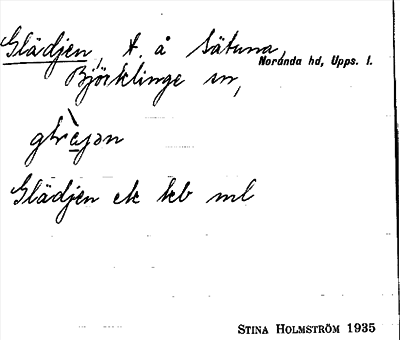 Glädjen, t. å Sätuna,
Björklinge sn, Norunda hd, Upps. l.
Glädjen ek kb ml
STINA HOLMSTRÖM 1935